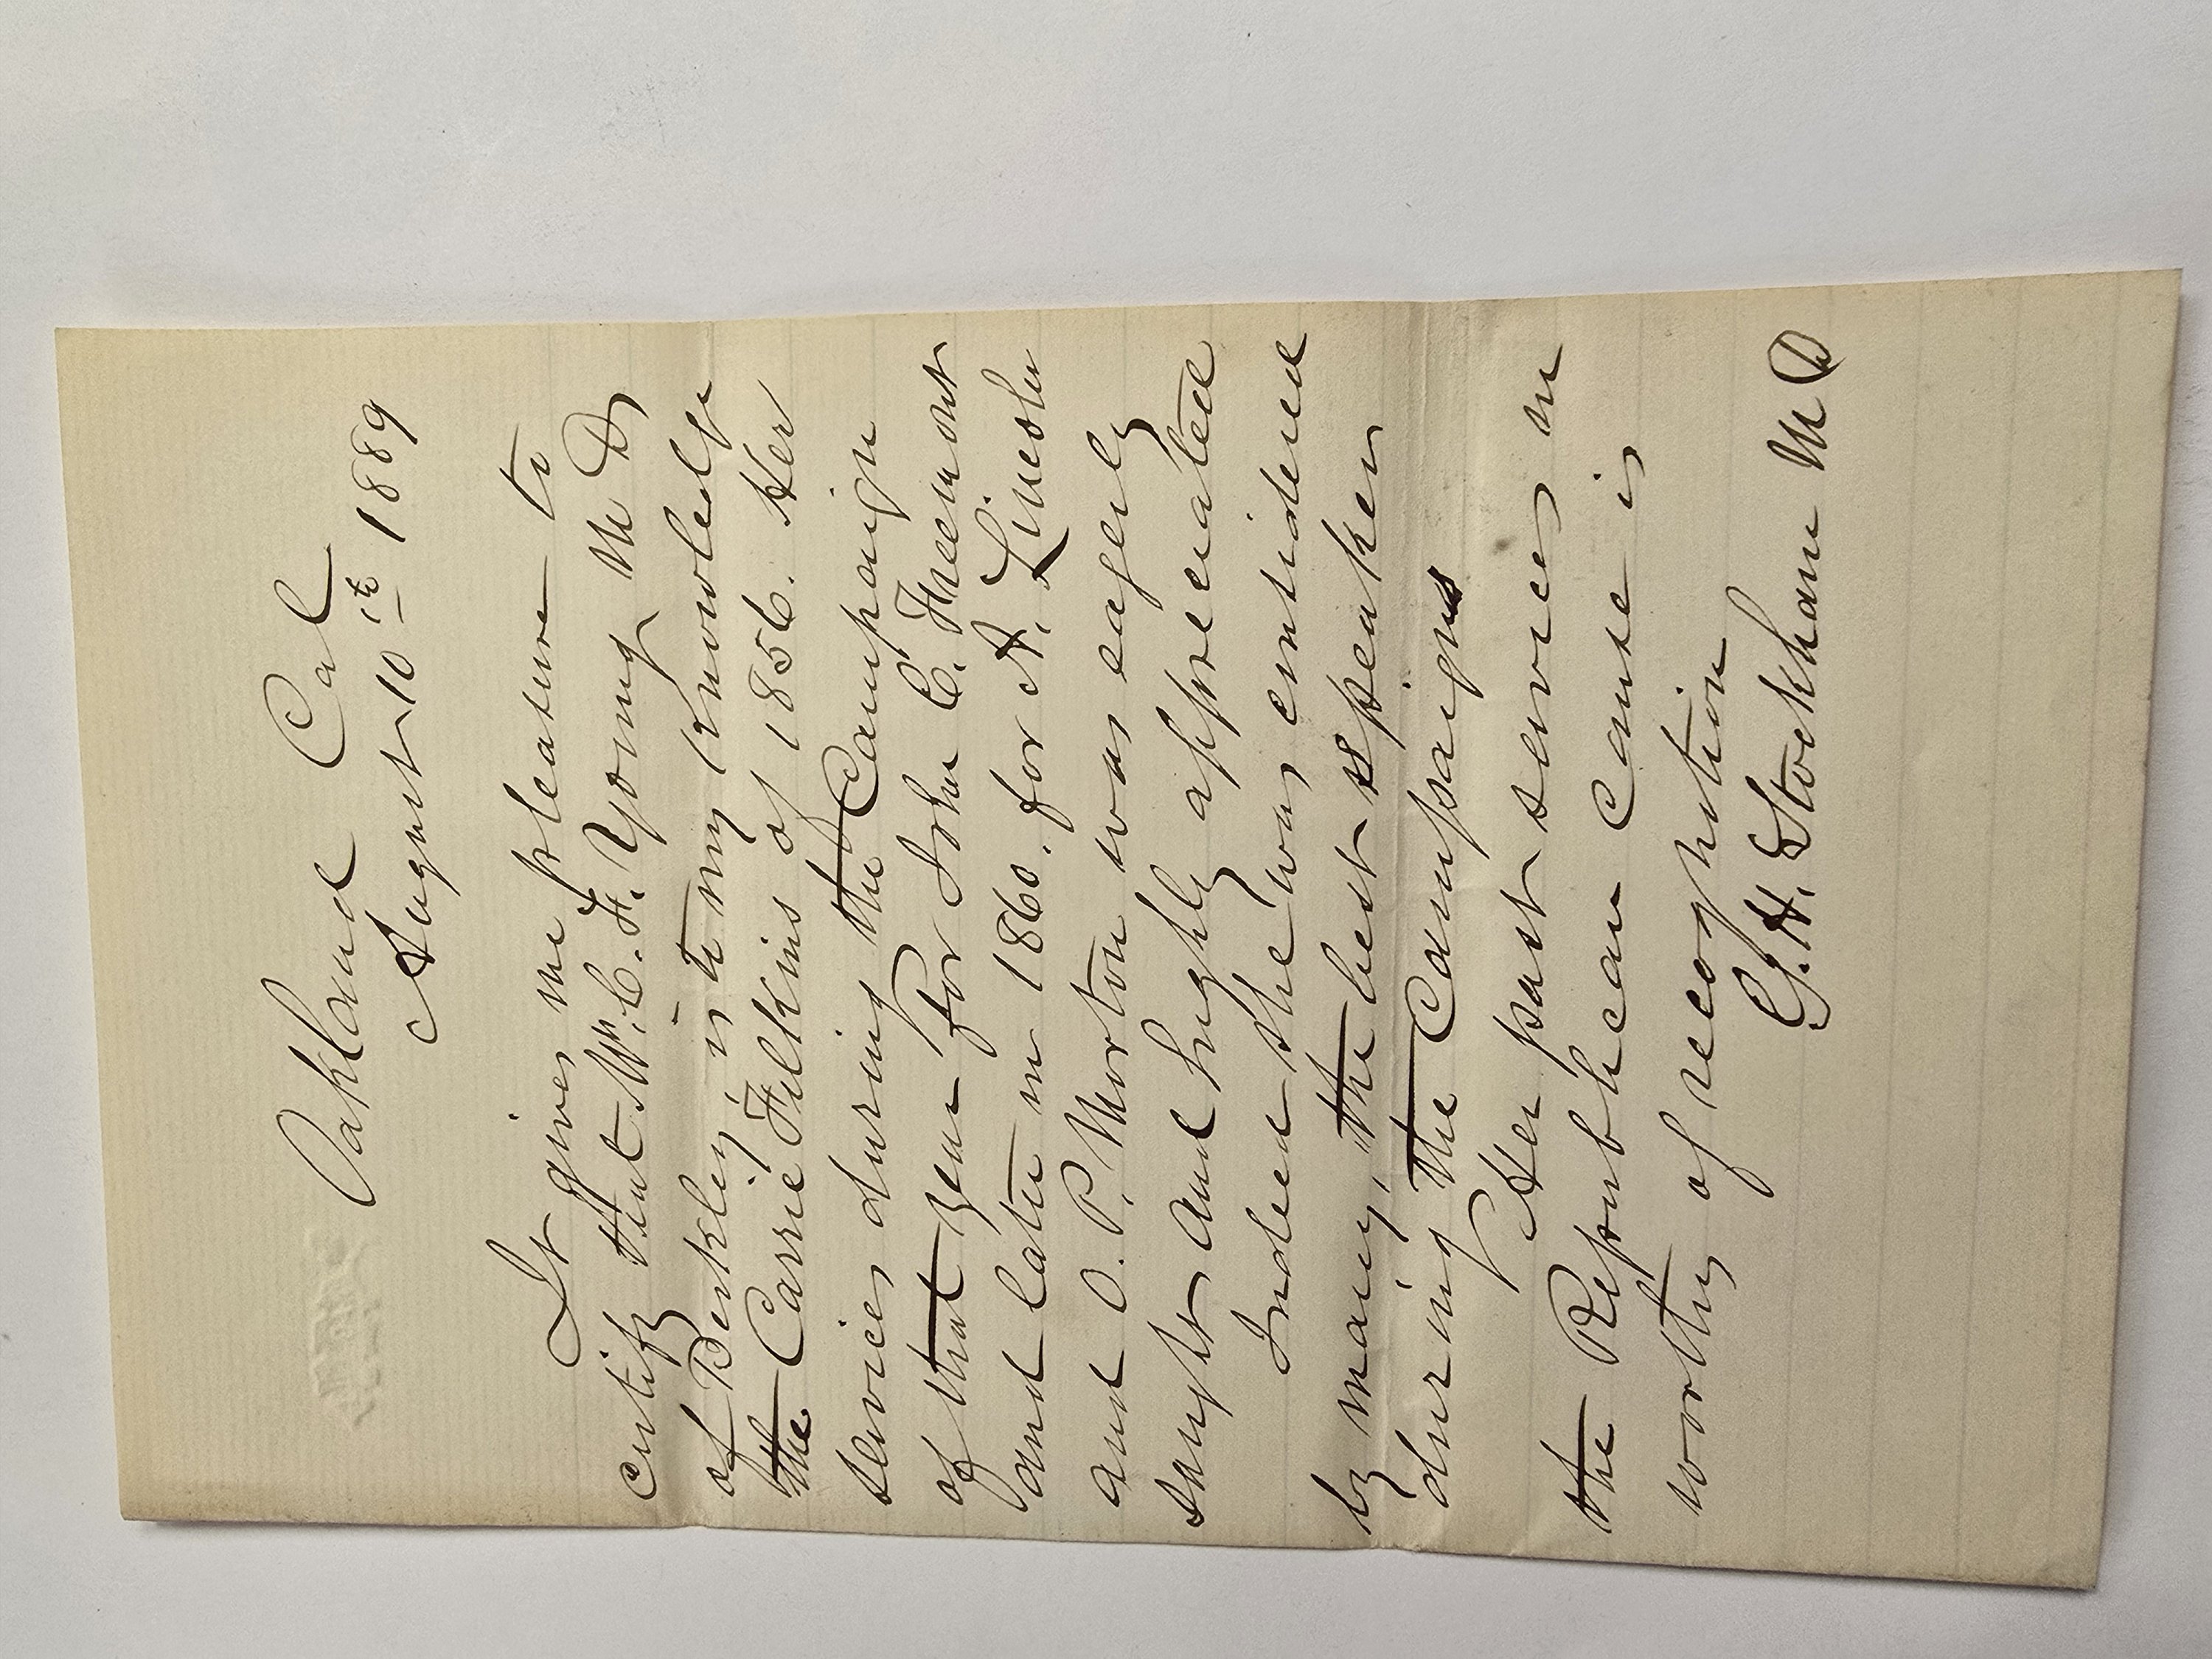 Oakland Cal
August 10th 1889
It gives me pleasure to
certify that Mrs. C. F. Young M D
of Berkley, is to my knowledge
the Carrie Filkins of 1856. Her
services during the Campaign
of that year for John C. Freemont
and later in 1860. for A. Lincoln
and O. P. Morton was eagerly
saught and highly appreciated
Indeed she was considered
by many, the best speaker
during the Campaigns
Her past services in
the Republican Cause is
worthy of recognition
G. H. Stockham M D